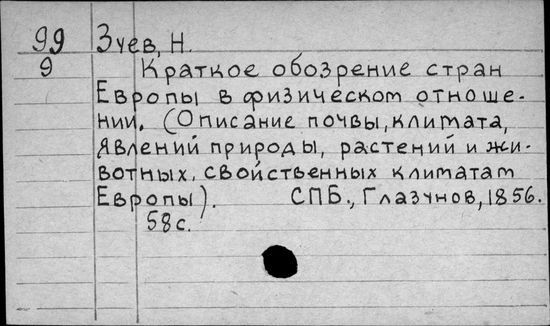 99 Зуев, Н.
9 Краткое обозрение стран
Европы в физическом отноше-
нии. (Описание почвы, климата,
явлений природы, растений и жи-
вотных, свойственных климатам
Европы). СПБ., Глазунов, 1856.
58с.